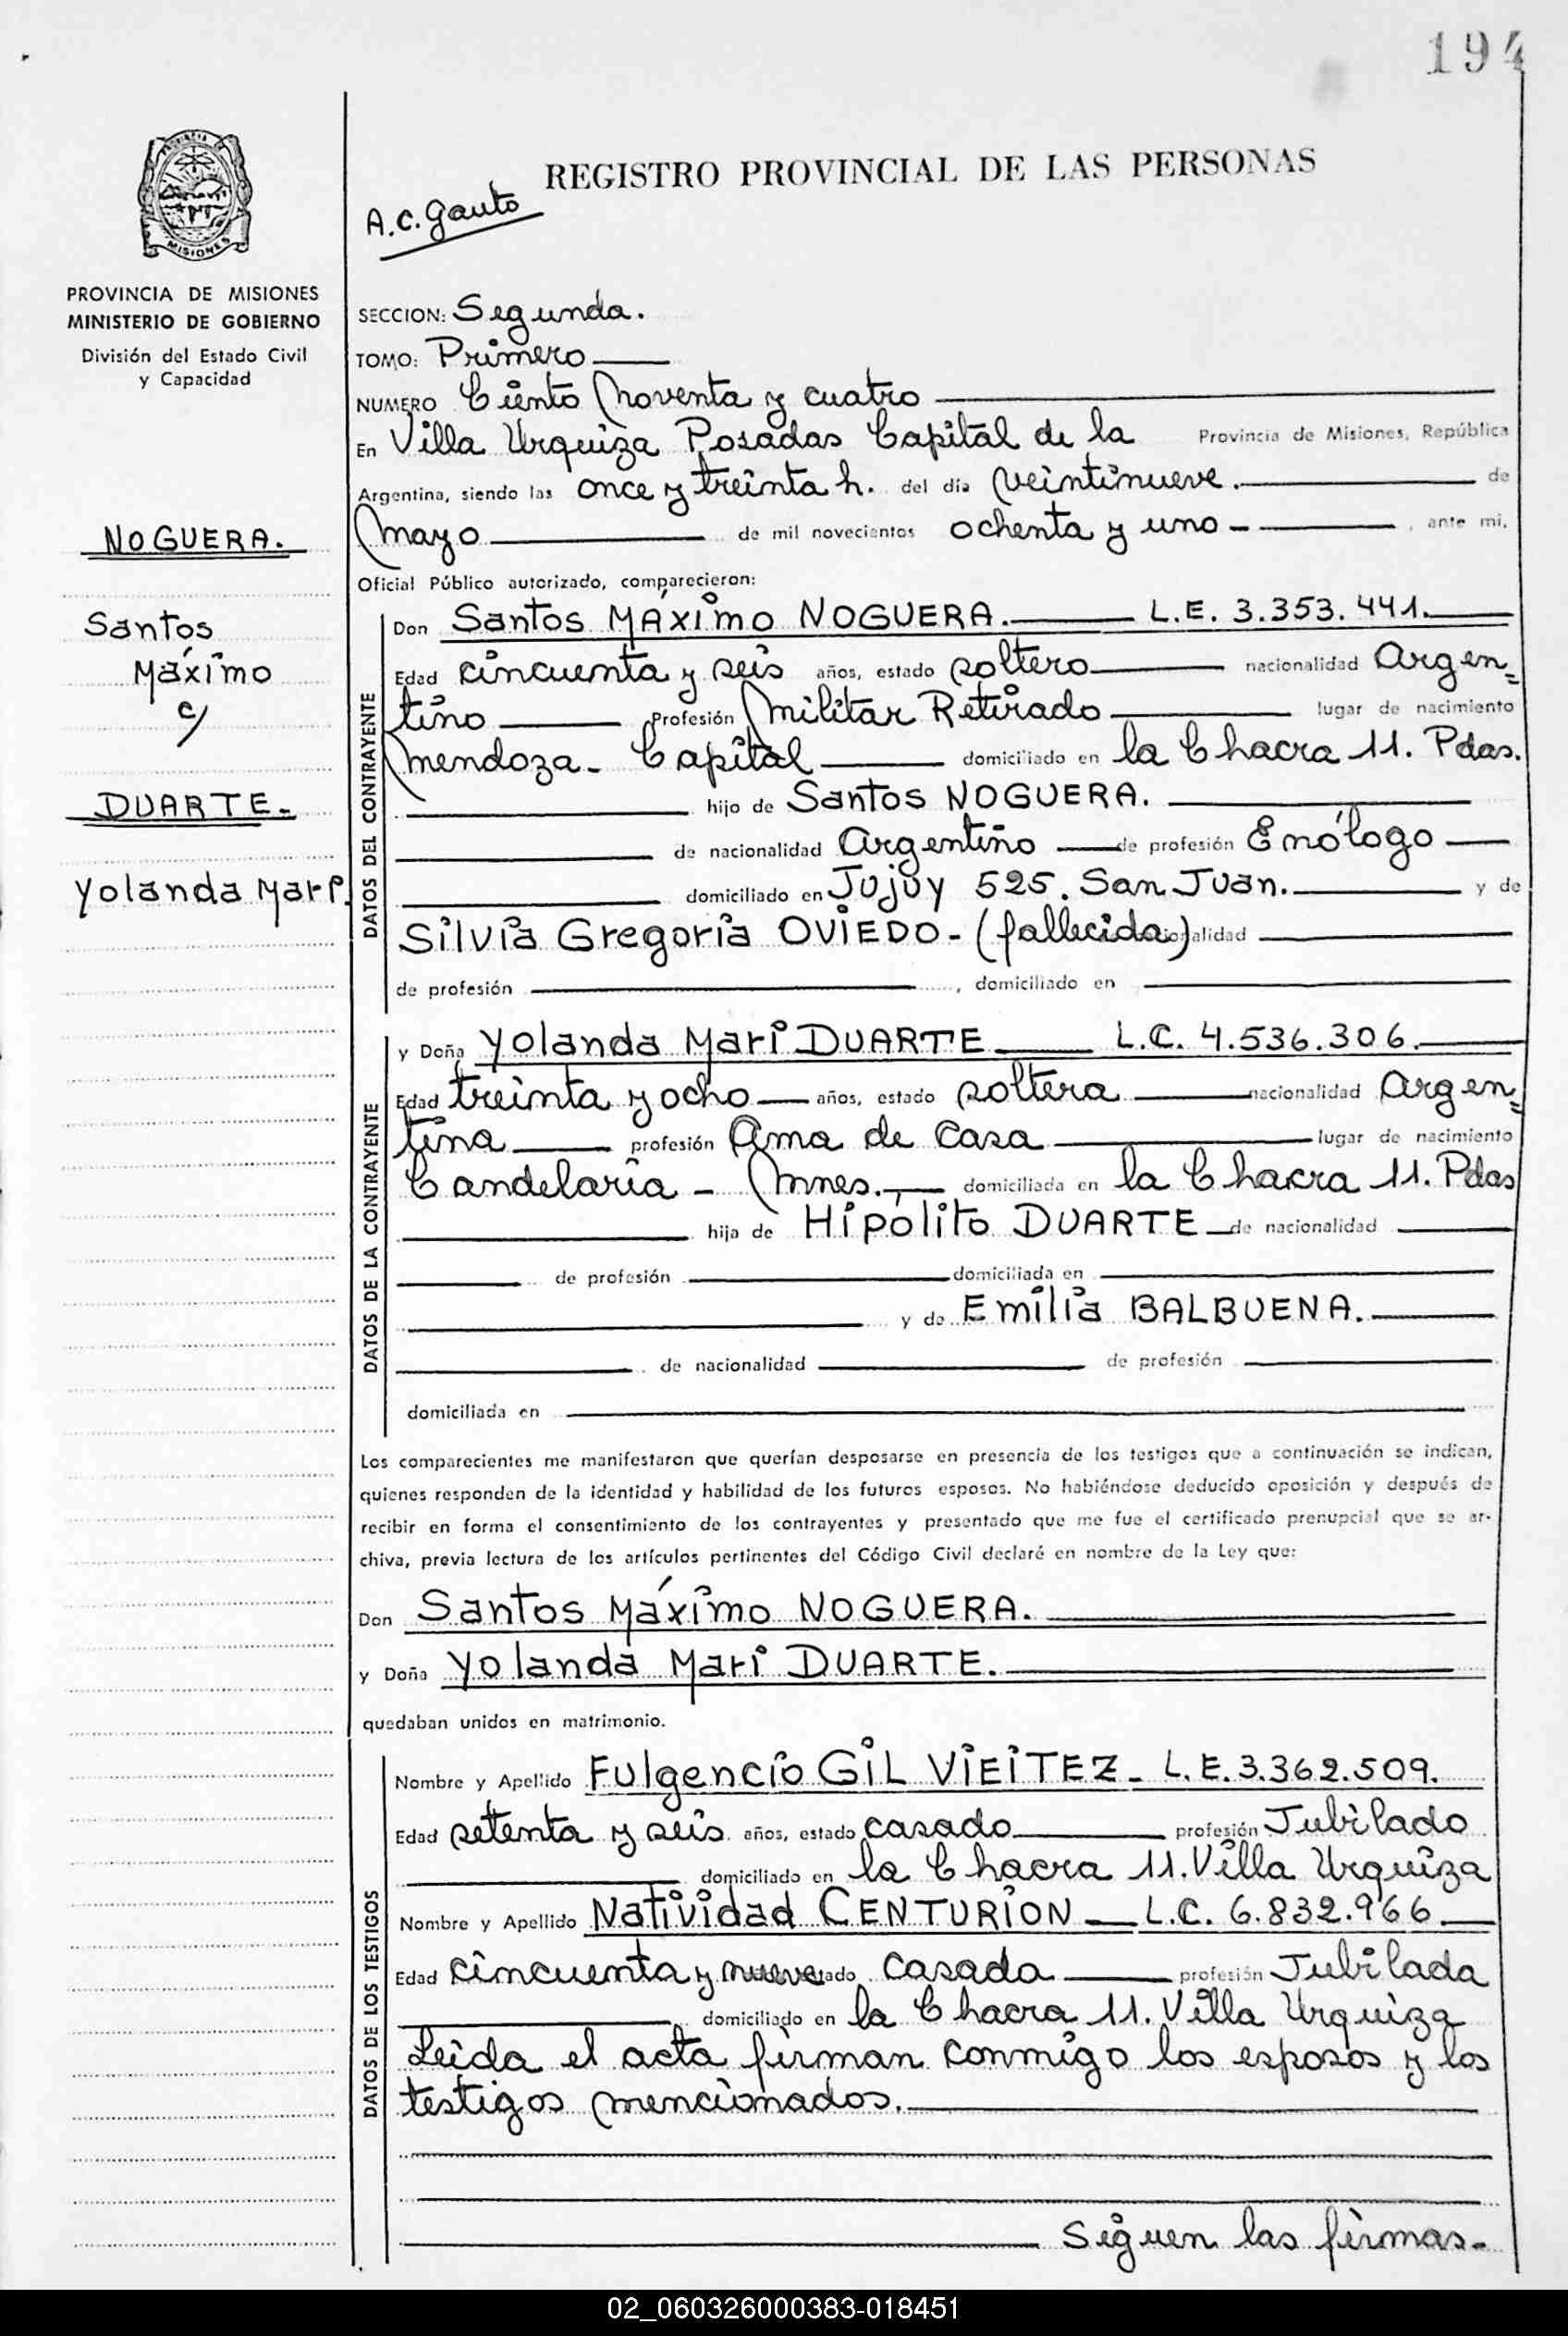 194
PROVINCIA
MISIONES
REGISTRO PROVINCIAL DE LAS PERSONAS
A.C. Gauto
PROVINCIA DE MISIONES
MINISTERIO DE GOBIERNO
División del Estado Civil
y Capacidad
NOGUERA.
Santos
Máximo
c/
DUARTE.-
Yolanda Mari.
SECCION: Segunda.
TOMO: Primero
NUMERO Ciento Noventa y cuatro
En Villa Urquiza Posadas Capital de la Provincia de Misiones, República
Argentina, siendo las once y treinta h. del día Veintinueve. de
Mayo de mil novecientos ochenta y uno - , ante mi,
Oficial Público autorizado, comparecieron:
DATOS DEL CONTRAYENTE
Don Santos MÁXimo NOGUERA. L.E. 3.353.441.
Edad cincuenta y seis años, estado soltero nacionalidad Argen=
tino Profesión Militar Retirado lugar de nacimiento
Mendoza - Capital domiciliado en la Chacra 11. Pdas.
hijo de Santos NOGUERA.
de nacionalidad Argentino de profesión Enólogo
domiciliado en Jujuy 525. San Juan. y de
Silvia Gregoria OVIEDO - (fallecida) nacionalidad
de profesión , domiciliado en
DATOS DE LA CONTRAYENTE
y Doña Yolanda Mari DUARTE L.C. 4.536.306.
Edad treinta y ocho años, estado soltera nacionalidad Argen=
tina profesión Ama de Casa lugar de nacimiento
Candelaria - Mnes. - domiciliada en la Chacra 11. Pdas
hija de Hipólito DUARTE de nacionalidad
de profesión domiciliada en
y de Emilia BALBUENA.
de nacionalidad de profesión
domiciliada en
Los comparecientes me manifestaron que querían desposarse en presencia de los testigos que a continuación se indican,
quienes responden de la identidad y habilidad de los futuros esposos. No habiéndose deducido oposición y después de
recibir en forma el consentimiento de los contrayentes y presentado que me fue el certificado prenupcial que se ar-
chiva, previa lectura de los artículos pertinentes del Código Civil declaré en nombre de la Ley que:
Don Santos Máximo NOGUERA.
y Doña Yolanda Mari DUARTE.
quedaban unidos en matrimonio.
DATOS DE LOS TESTIGOS
Nombre y Apellido Fulgencio GIL VIEITEZ - L.E. 3.362.509.
Edad setenta y seis años, estado casado profesión Jubilado
domiciliado en la Chacra 11. Villa Urquiza
Nombre y Apellido Natividad CENTURION L.C. 6.832.966
Edad cincuenta y nueve estado casada profesión Jubilada
domiciliado en la Chacra 11. Villa Urquiza
Leída el acta firman conmigo los esposos y los
testigos mencionados.
Siguen las firmas -
02_060326000383-018451